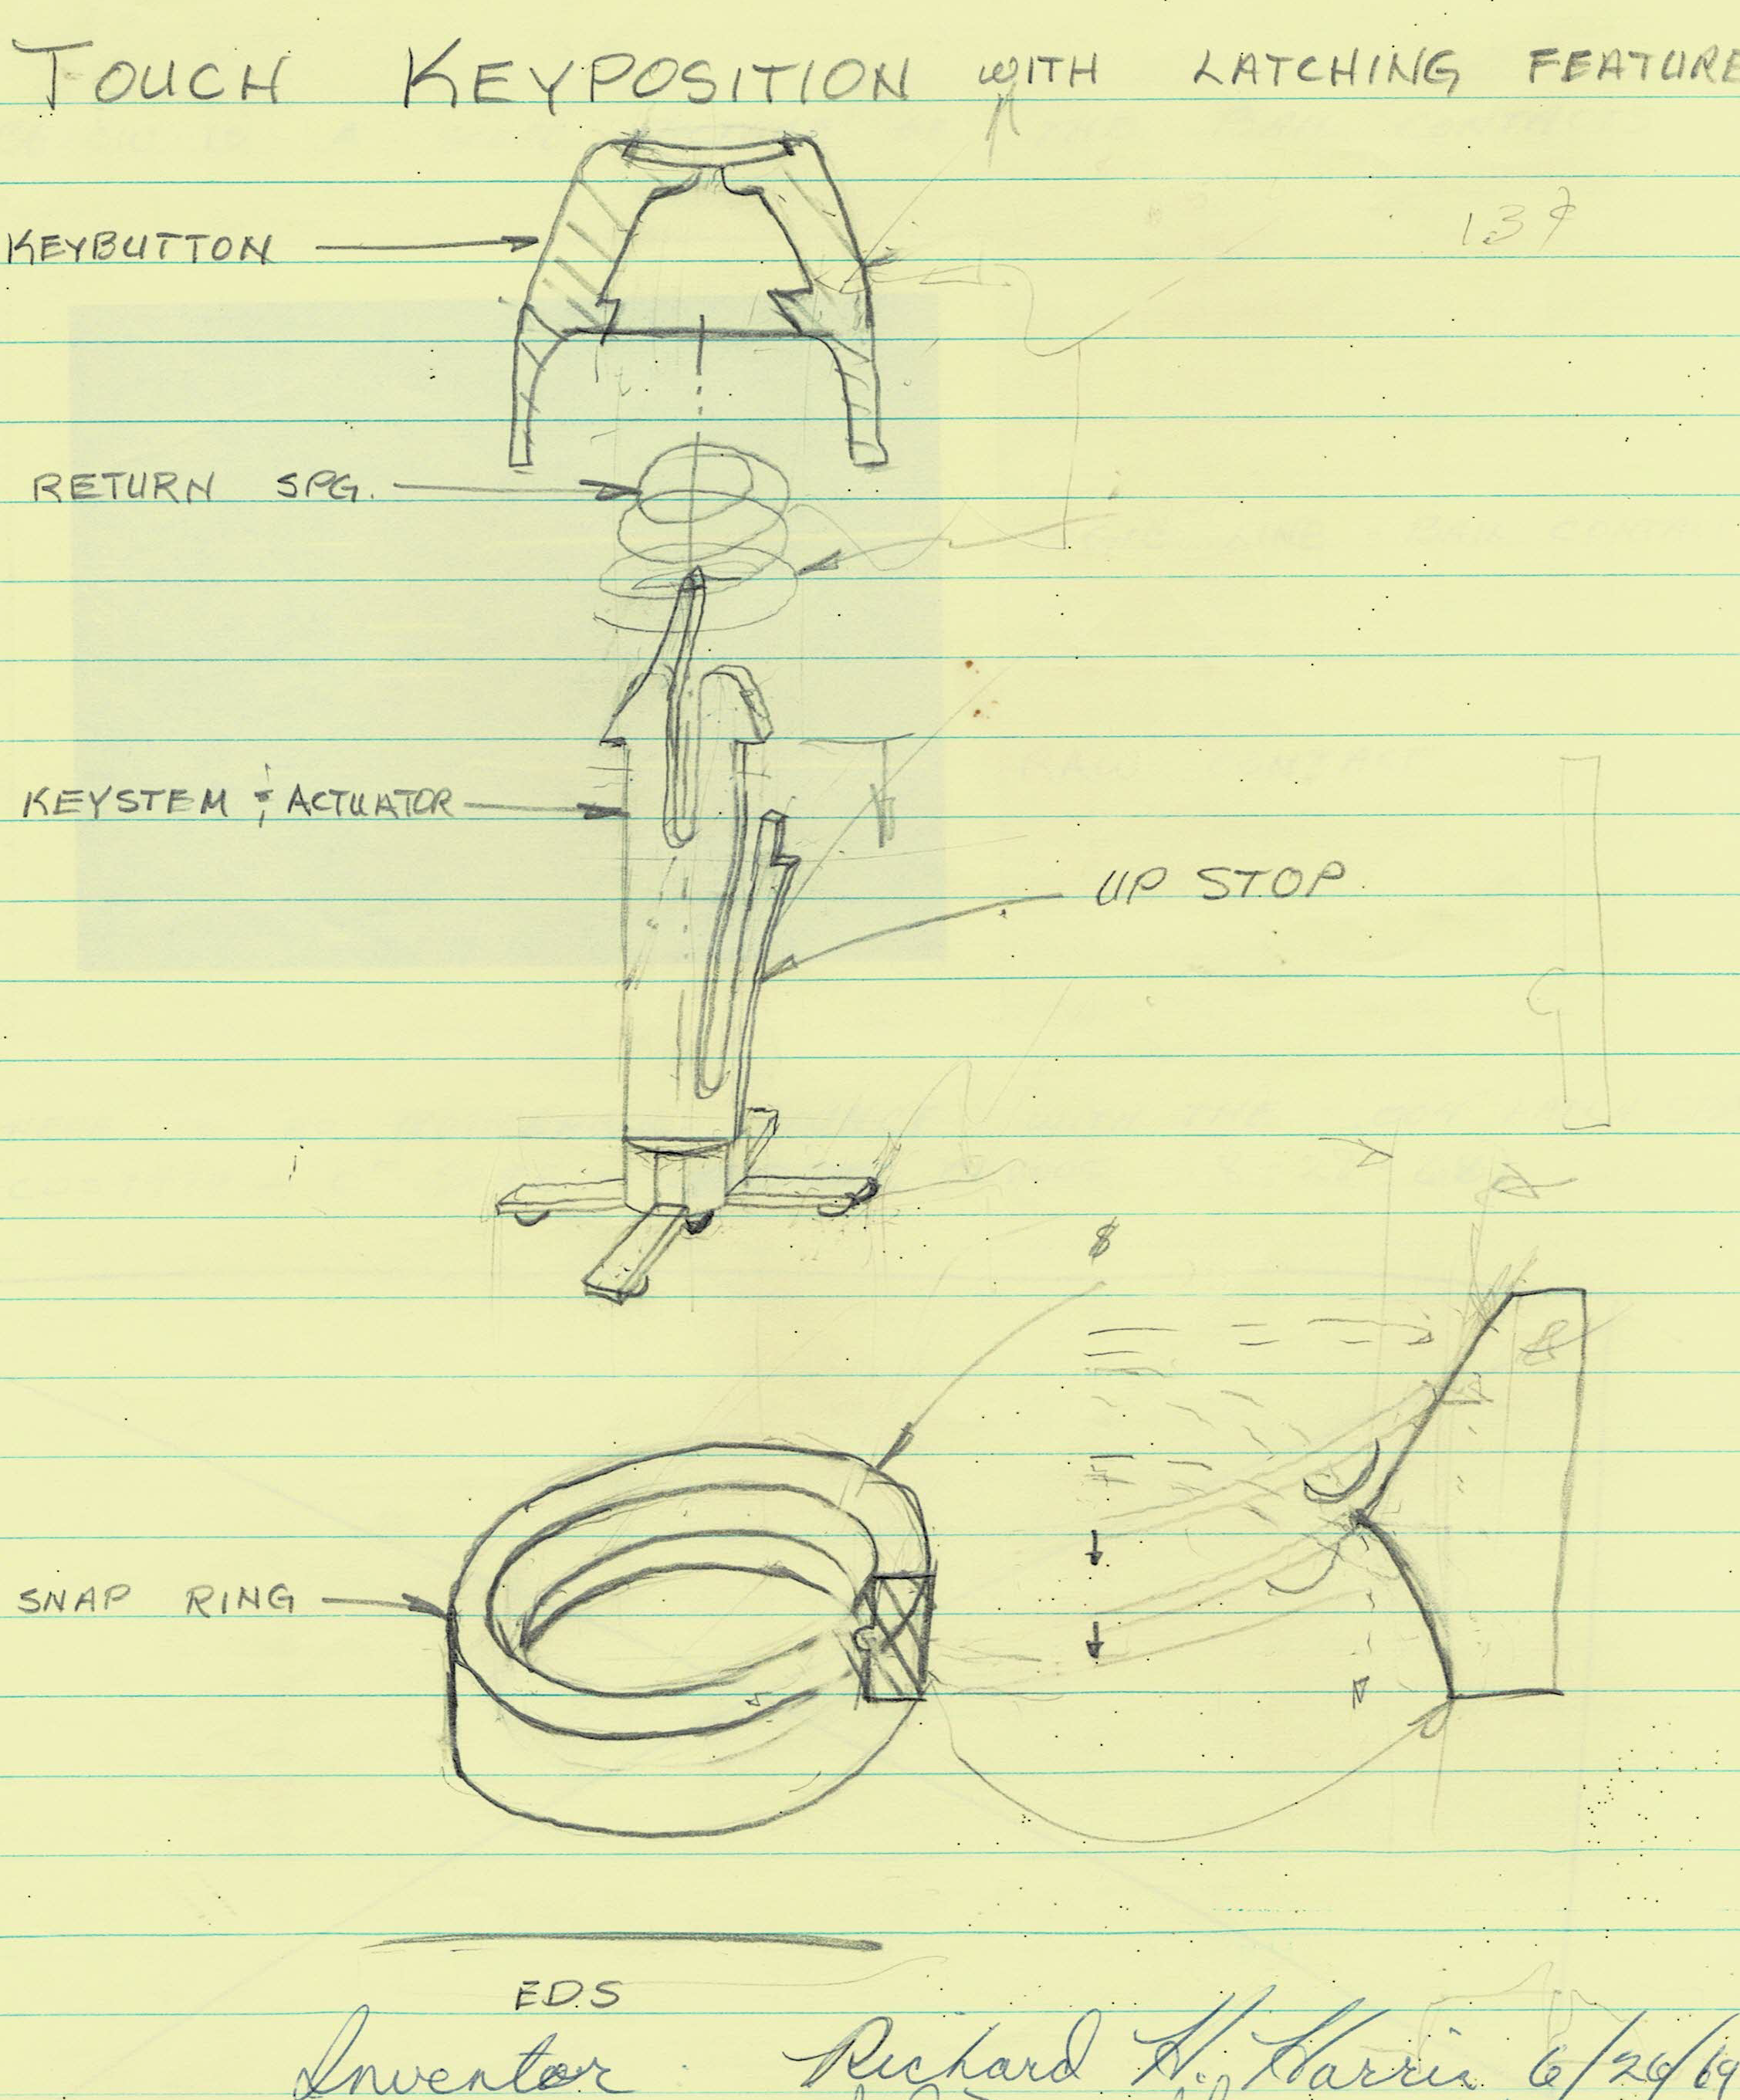 TOUCH KEYPOSITION WITH LATCHING FEATURE
137
KEYBUTTON
RETURN SPG.
KEYSTEM & ACTUATOR
UP STOP.
SNAP RING
E.D.S
Inventor Richard H. Harris 6/26/69